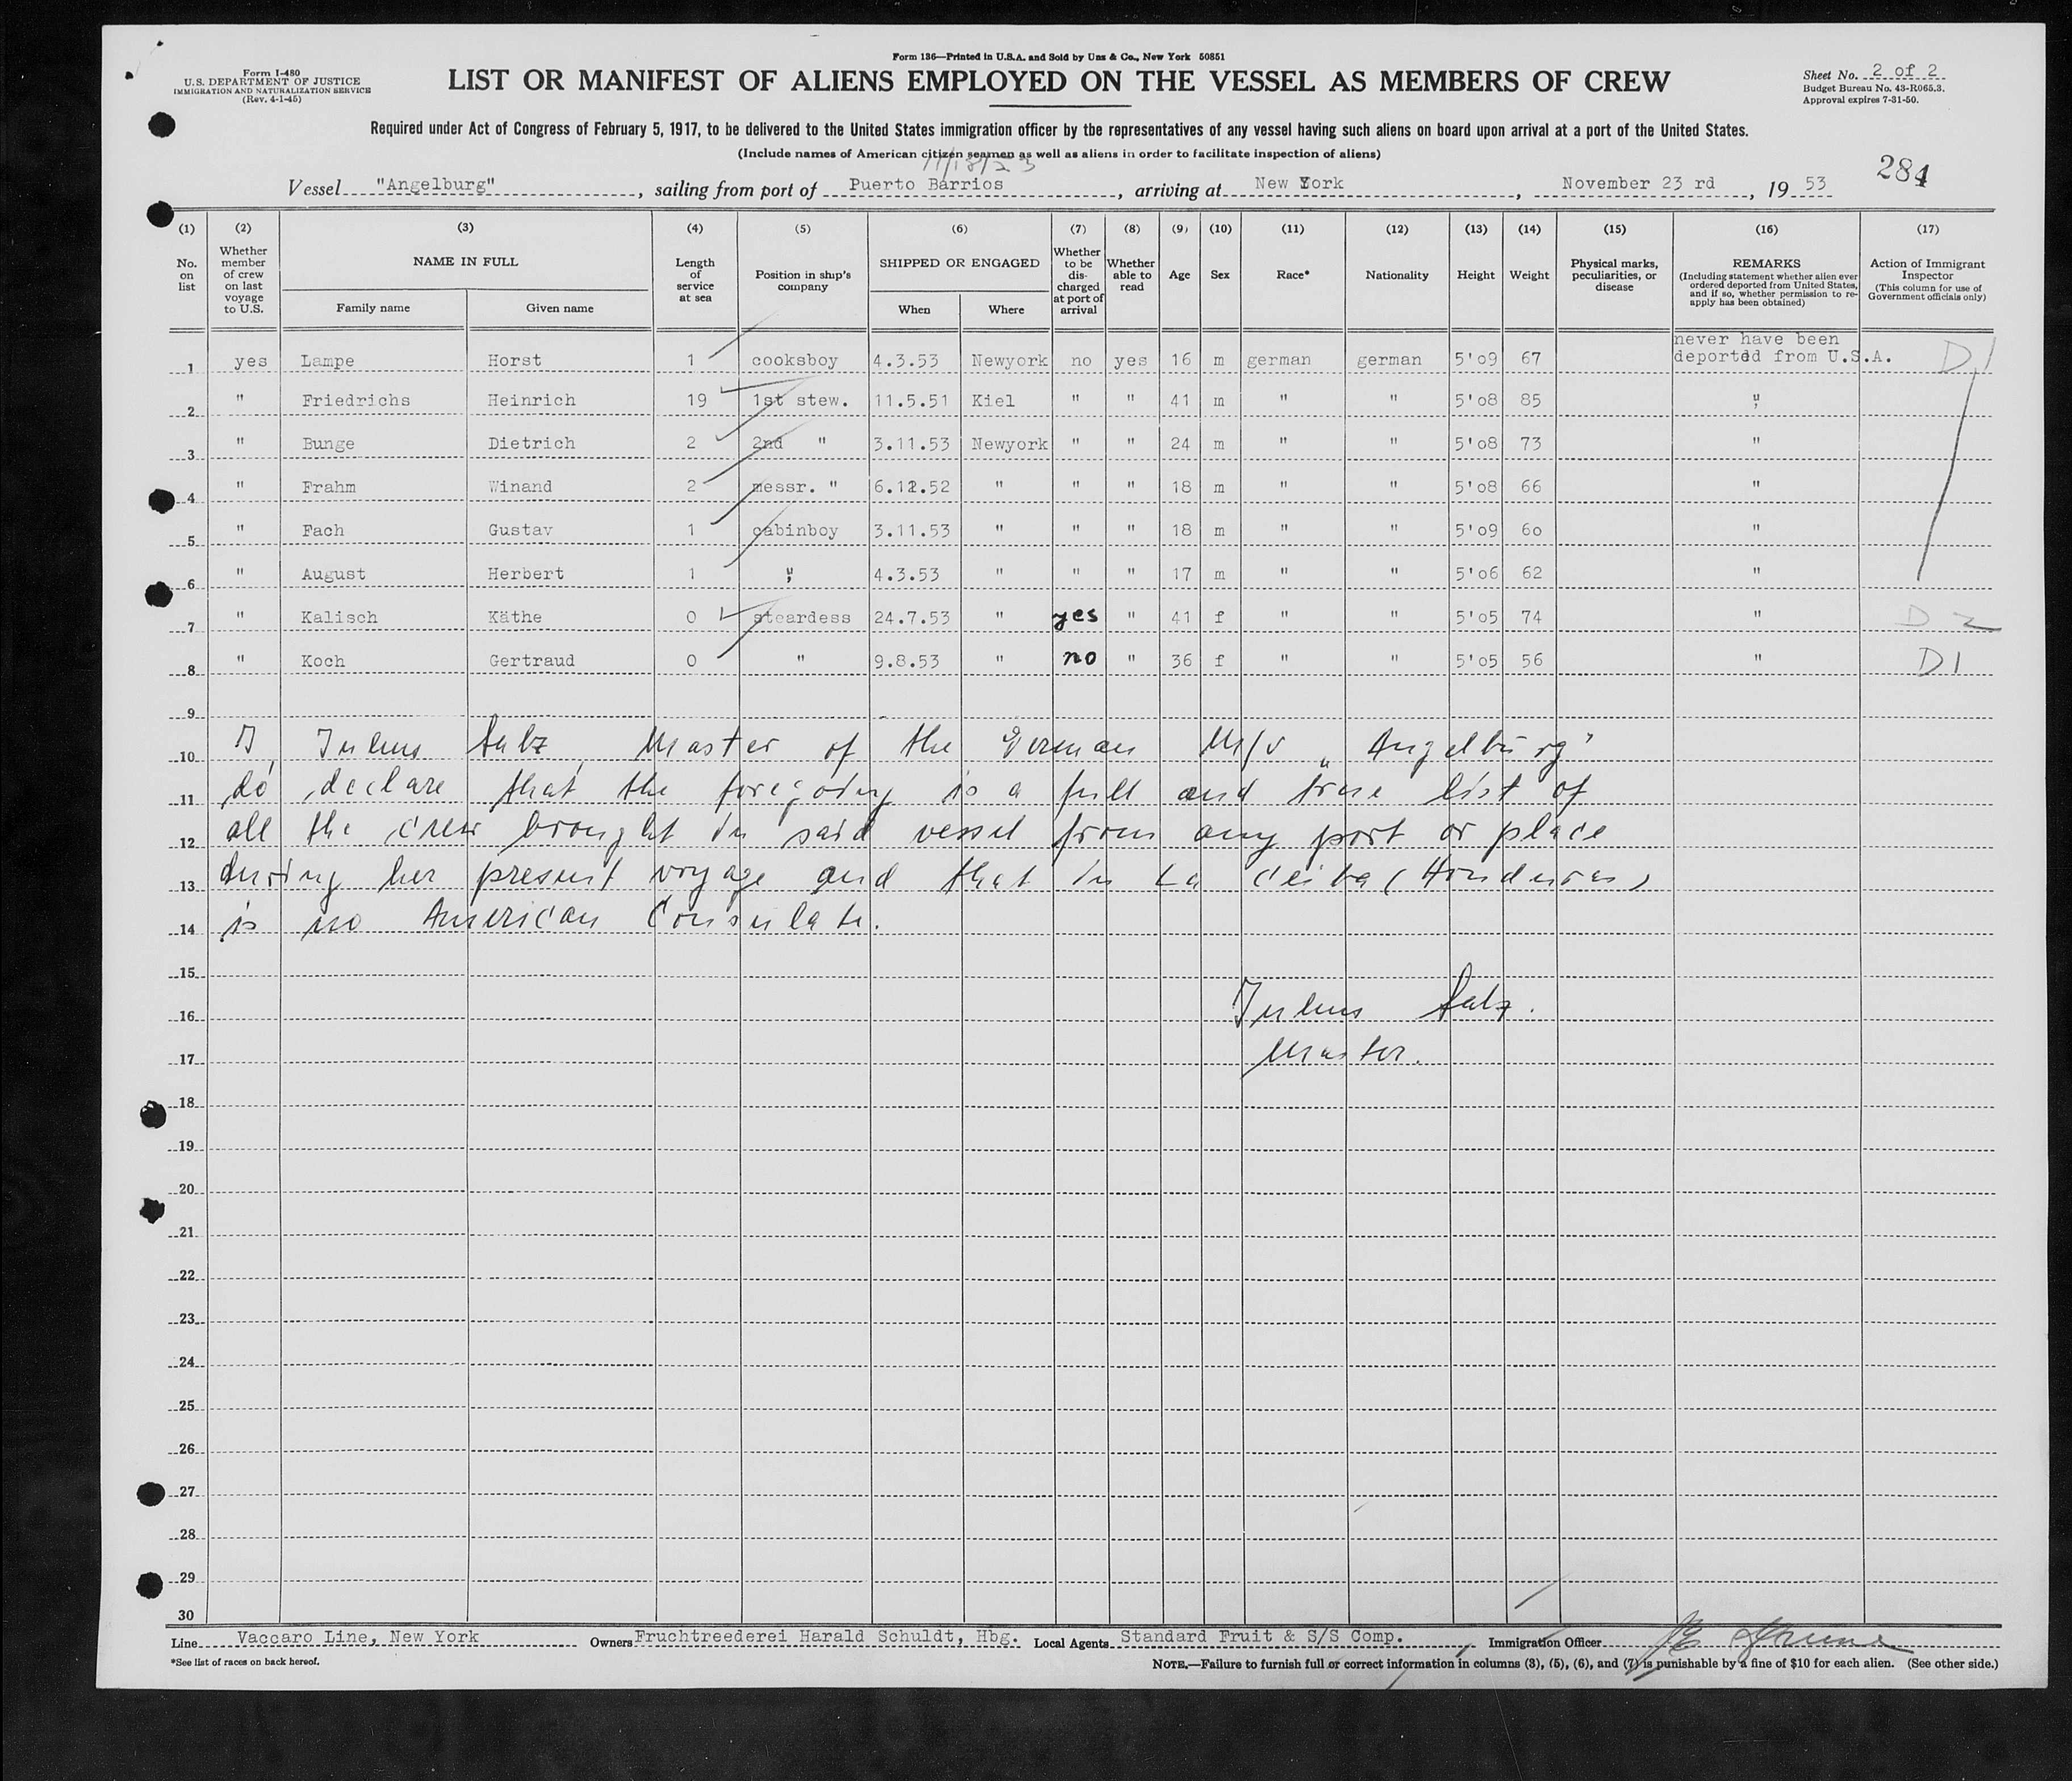 Form 136—Printed in U.S.A. and Sold by Unz & Co., New York 50851
Form I-480
U.S. DEPARTMENT OF JUSTICE
IMMIGRATION AND NATURALIZATION SERVICE
(Rev. 4-1-45)
LIST OR MANIFEST OF ALIENS EMPLOYED ON THE VESSEL AS MEMBERS OF CREW
Sheet No. 2 of 2
Budget Bureau No. 43-R065.3.
Approval expires 7-31-50.
Required under Act of Congress of February 5, 1917, to be delivered to the United States immigration officer by the representatives of any vessel having such aliens on board upon arrival at a port of the United States.
(Include names of American citizen seamen as well as aliens in order to facilitate inspection of aliens)
11/18/53
284
Vessel "Angelburg", sailing from port of Puerto Barrios, arriving at New York, November 23 rd, 19 53
(1) (2) (3) (4) (5) (6) (7) (8) (9) (10) (11) (12) (13) (14) (15) (16) (17)
No. on list
Whether member of crew on last voyage to U.S.
NAME IN FULL
Family name Given name
Length of service at sea
Position in ship's company
SHIPPED OR ENGAGED
When Where
Whether to be discharged at port of arrival
Whether able to read
Age Sex Race* Nationality Height Weight
Physical marks, peculiarities, or disease
REMARKS
(Including statement whether alien ever ordered deported from United States, and if so, whether permission to re-apply has been obtained)
Action of Immigrant Inspector
(This column for use of Government officials only)
1 yes Lampe Horst 1 cooksboy 4.3.53 Newyork no yes 16 m german german 5'09 67 never have been deported from U.S.A. D1
2 " Friedrichs Heinrich 19 1st stew. 11.5.51 Kiel " " 41 m " " 5'08 85 "
3 " Bunge Dietrich 2 2nd " 3.11.53 Newyork " " 24 m " " 5'08 73 "
4 " Frahm Winand 2 messr. " 6.12.52 " " " 18 m " " 5'08 66 "
5 " Fach Gustav 1 cabinboy 3.11.53 " " " 18 m " " 5'09 6o "
6 " August Herbert 1 " 4.3.53 " " " 17 m " " 5'06 62 "
7 " Kalisch Käthe 0 steardess 24.7.53 " yes " 41 f " " 5'05 74 " D2
8 " Koch Gertraud 0 " 9.8.53 " no " 36 f " " 5'05 56 " D1
9
10 I Julius Salz, Master of the German M/v „Angelburg"
11 do declare that the foregoing is a full and true list of
12 all the crew brought in said vessel from any port or place
13 during her present voyage and that in La Ceiba (Honduras)
14 is no American Consulate.
15
16 Julius Salz.
17 Master.
18
19
20
21
22
23
24
25
26
27
28
29
30
Line Vaccaro Line, New York Owners Fruchtreederei Harald Schuldt, Hbg. Local Agents Standard Fruit & S/S Comp. Immigration Officer
*See list of races on back hereof.
NOTE.—Failure to furnish full or correct information in columns (3), (5), (6), and (7) is punishable by a fine of $10 for each alien. (See other side.)